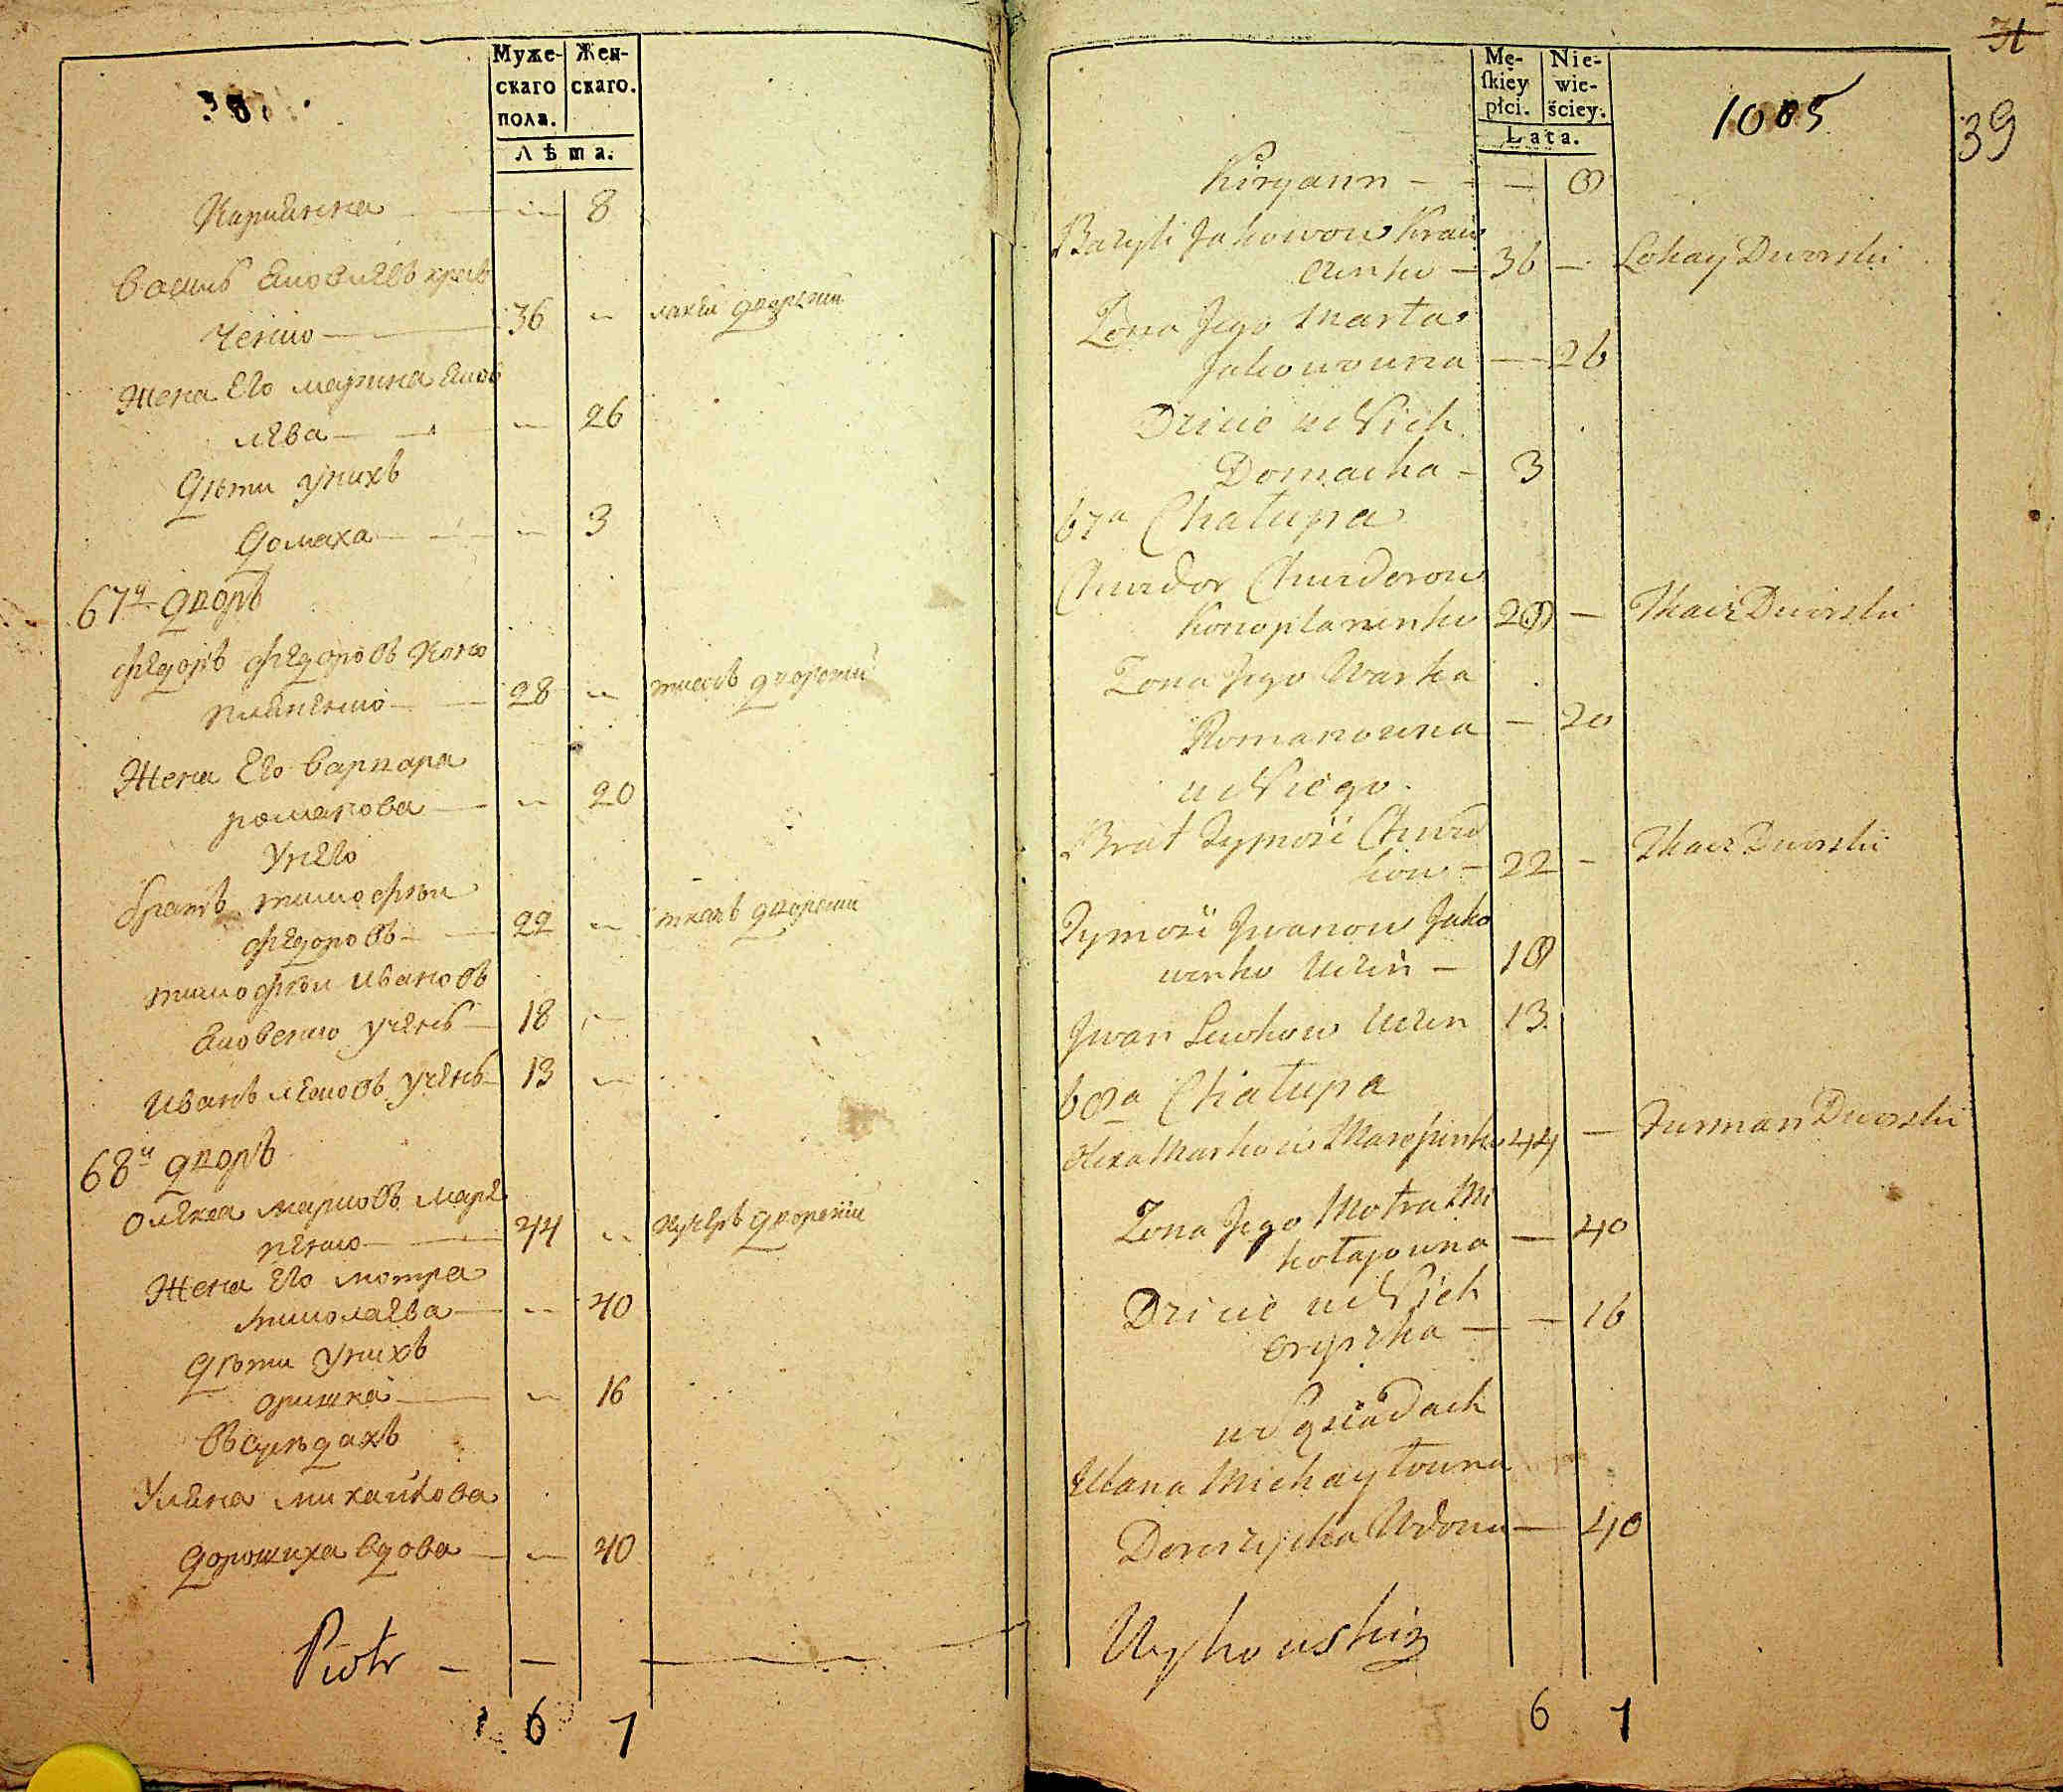 Муже-
скаго
пола.
Жен-
скаго.
Лѣта.
8
Василь Яковлевъ крав
ченко 36 лакей дворский
Жена Его марина Яков
лева 26
Дѣти унихъ
Домаха 3
67й дворъ
Федоръ Федоровъ коно
пляненко 28 ткачь дворский
Жена Его варвара
романова 20
Унего
братъ тимофѣй
Федоровъ 22 ткачь дворский
тимофѣй Ивановъ
Яковенко ученъ 18
Иванъ левковъ ученъ 13
68й дворъ
Олекса марковъ маре
ненко 44 кучеръ дворский
Жена Его мотра
николаева 40
Дѣти унихъ
оришка 16
Всусѣдахъ
Уляна михайлова
дорошиха вдова 40
Piotr
6 7
39
1005
Mę-
ſkiey
płci.
Nie-
wie-
ściey.
Lata.
Kiryann 8
Bazyli Jakowow Kraw
czenko 36 Lokay Dworski
Żona Jego Marta
Jakowowna 26
Dzieci u Nich
Domacha 3
67a Chałupa
Chwedor Chwederow
Konoplanenko 28 Tkacz Dworski
Żona Jego Warka
Romanowna 20
u Niego
Brat Tymosz Chwed
kow 22 Tkacz Dworski
Tymosz Iwanow Jako
wenko Uczeń 18
Iwan Lewkow Uczen 13
68a Chałupa
Olexa Markow 44 Furman Dworski
Żona Jego Motra Mi
kołajowna 40
Dzieci u Nich
Oryszka 16
w Sąsiadach
Ulana Michayłowna
Doroszycha Wdowa 40
Wyhowskiy
6 7